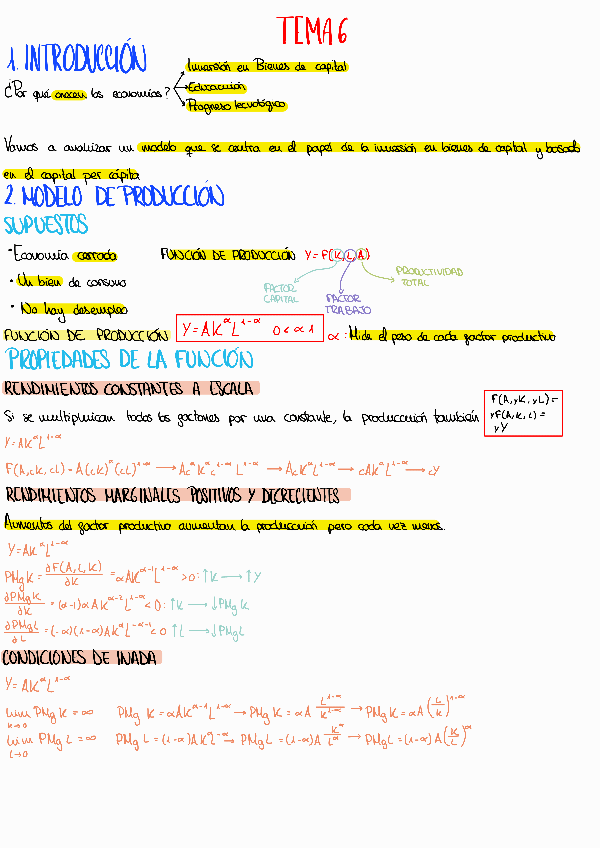 TEMA 6
1. INTRODUCCIÓN
¿Por qué crecen las economías?
Inversión en Bienes de capital
Educación
Progreso tecnológico
Vamos a analizar un modelo que se centra en el papel de la inversión en bienes de capital y basado
en el capital per cápita
2. MODELO DE PRODUCCIÓN
SUPUESTOS
· Economía cerrada
FUNCIÓN DE PRODUCCIÓN Y=F(K,L,A)
PRODUCTIVIDAD TOTAL
FACTOR CAPITAL
FACTOR TRABAJO
· Un bien de consumo
· No hay desempleo
FUNCIÓN DE PRODUCCIÓN Y=AK^α L^1-α 0<α<1 α: Mide el peso de cada factor productivo
PROPIEDADES DE LA FUNCIÓN
RENDIMIENTOS CONSTANTES A ESCALA
Si se multiplican todos los factores por una constante, la producción también
F(A,γK,γL)=
γF(A,K,L)=
γY
Y=AK^α L^1-α
F(A,cK,cL)=A(cK)^α(cL)^1-α → Ac^αK^αc^1-αL^1-α → AcK^αL^1-α → cAK^αL^1-α → cY
RENDIMIENTOS MARGINALES POSITIVOS Y DECRECIENTES
Aumentos del factor productivo aumentan la producción pero cada vez menos.
Y=AK^α L^1-α
PMgK = ∂F(A,L,K)/∂K = αAK^α-1 L^1-α >0: ↑K → ↑Y
∂PMgK/∂K = (α-1)αAK^α-2 L^1-α <0: ↑K → ↓PMgK
∂PMgL/∂L = (-α)(1-α)AK^α L^-α-1 <0 ↑L → ↓PMgL
CONDICIONES DE INADA
Y=AK^α L^1-α
lim PMgK = ∞ K→0 PMgK = αAK^α-1 L^1-α → PMgK = αA L^1-α/K^1-α → PMgK = αA(L/K)^1-α
lim PMgL = ∞ L→0 PMgL = (1-α)AK^α L^-α → PMgL = (1-α)A K^α/L^α → PMgL = (1-α)A(K/L)^α